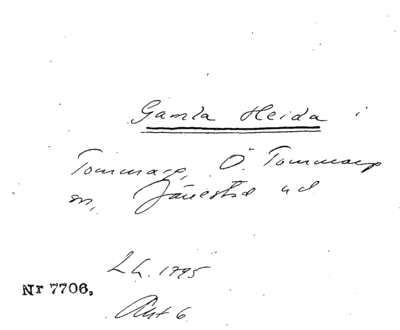 Gamla Heida i
Tommarp, Ö. Tommarp
sn, Järrestad hd
L.h. 1795
Nr 7706.
Akt 6